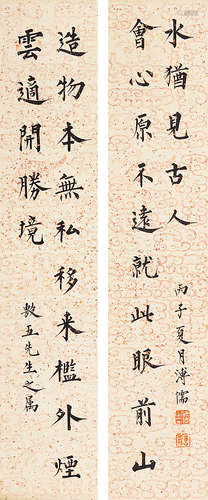 造物本無私移来檻外煙
雲適開勝境
敷五先生之属
會心原不遠就此眼前山
水猶見古人
丙子夏月溥儒